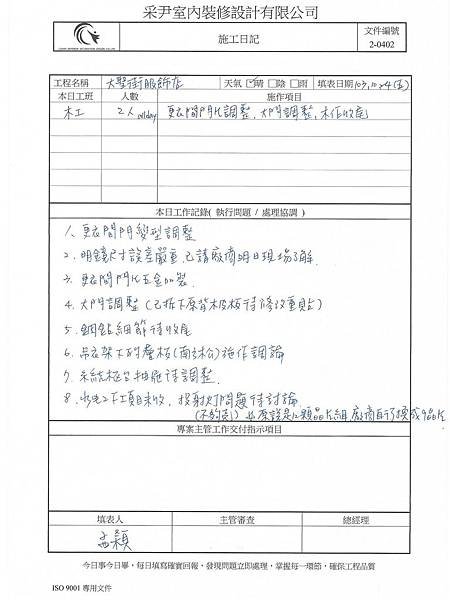 采尹室內裝修設計有限公司
施工日記
文件編號
2-0402
工程名稱 大墾街服飾店 天氣 ☑晴 □陰 □雨 填表日期 103,10,24(五)
本日工班 人數 施作項目
木工 2人 allday 更衣間門片調整,大門調整,木作收尾
本日工作記錄( 執行問題 / 處理協調 )
1、更衣間門變型調整
2、明鏡尺寸誤差嚴重,已請廠商明日現場了解.
3、更衣間門片五金加裝.
4、大門調整(已拆下原背板待修改重貼)
5、細節待收尾
6、吊衣架下的板(南)施作討論
7、系統櫃待調整.
8、水電2下工項目未收,投射燈問題待討論
原說是12顆晶片組 廠商自行換成9晶片
專案主管工作交付指示項目
填表人 主管審查 總經理
孟穎
今日事今日畢,每日填寫確實回報,發現問題立即處理,掌握每一環節,確保工程品質
ISO 9001 專用文件